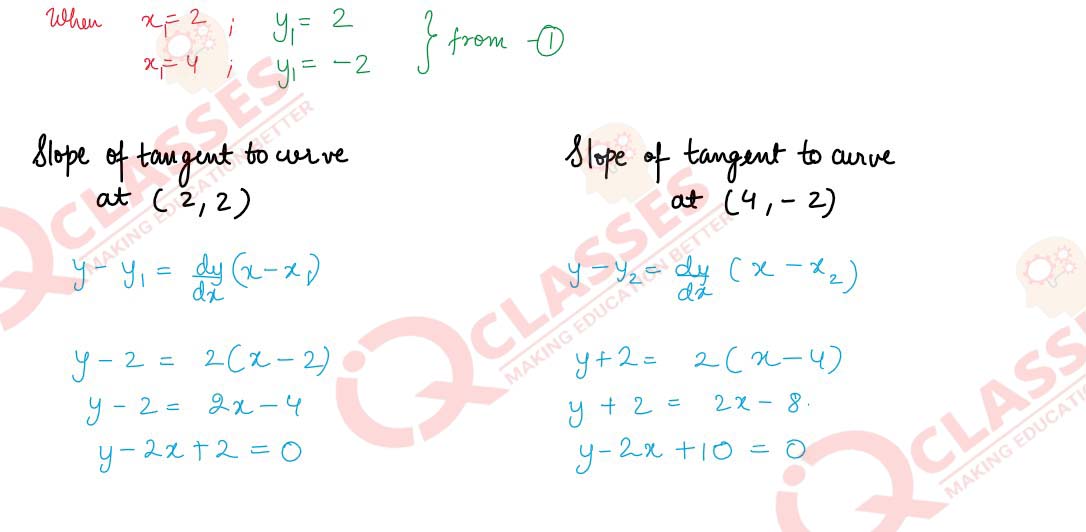 When x₁ = 2 ; y₁ = 2
x₁ = 4 ; y₁ = -2 } from -①
Slope of tangent to curve
at (2, 2)
y - y₁ = dy/dx (x - x₁)
y - 2 = 2(x - 2)
y - 2 = 2x - 4
y - 2x + 2 = 0
Slope of tangent to curve
at (4, -2)
y - y₂ = dy/dx (x - x₂)
y + 2 = 2(x - 4)
y + 2 = 2x - 8.
y - 2x + 10 = 0
QCLASSES
MAKING EDUCATION BETTER
iQCLASSES
MAKING EDUCATION BETTER
iQCLASS
MAKING EDUCATION